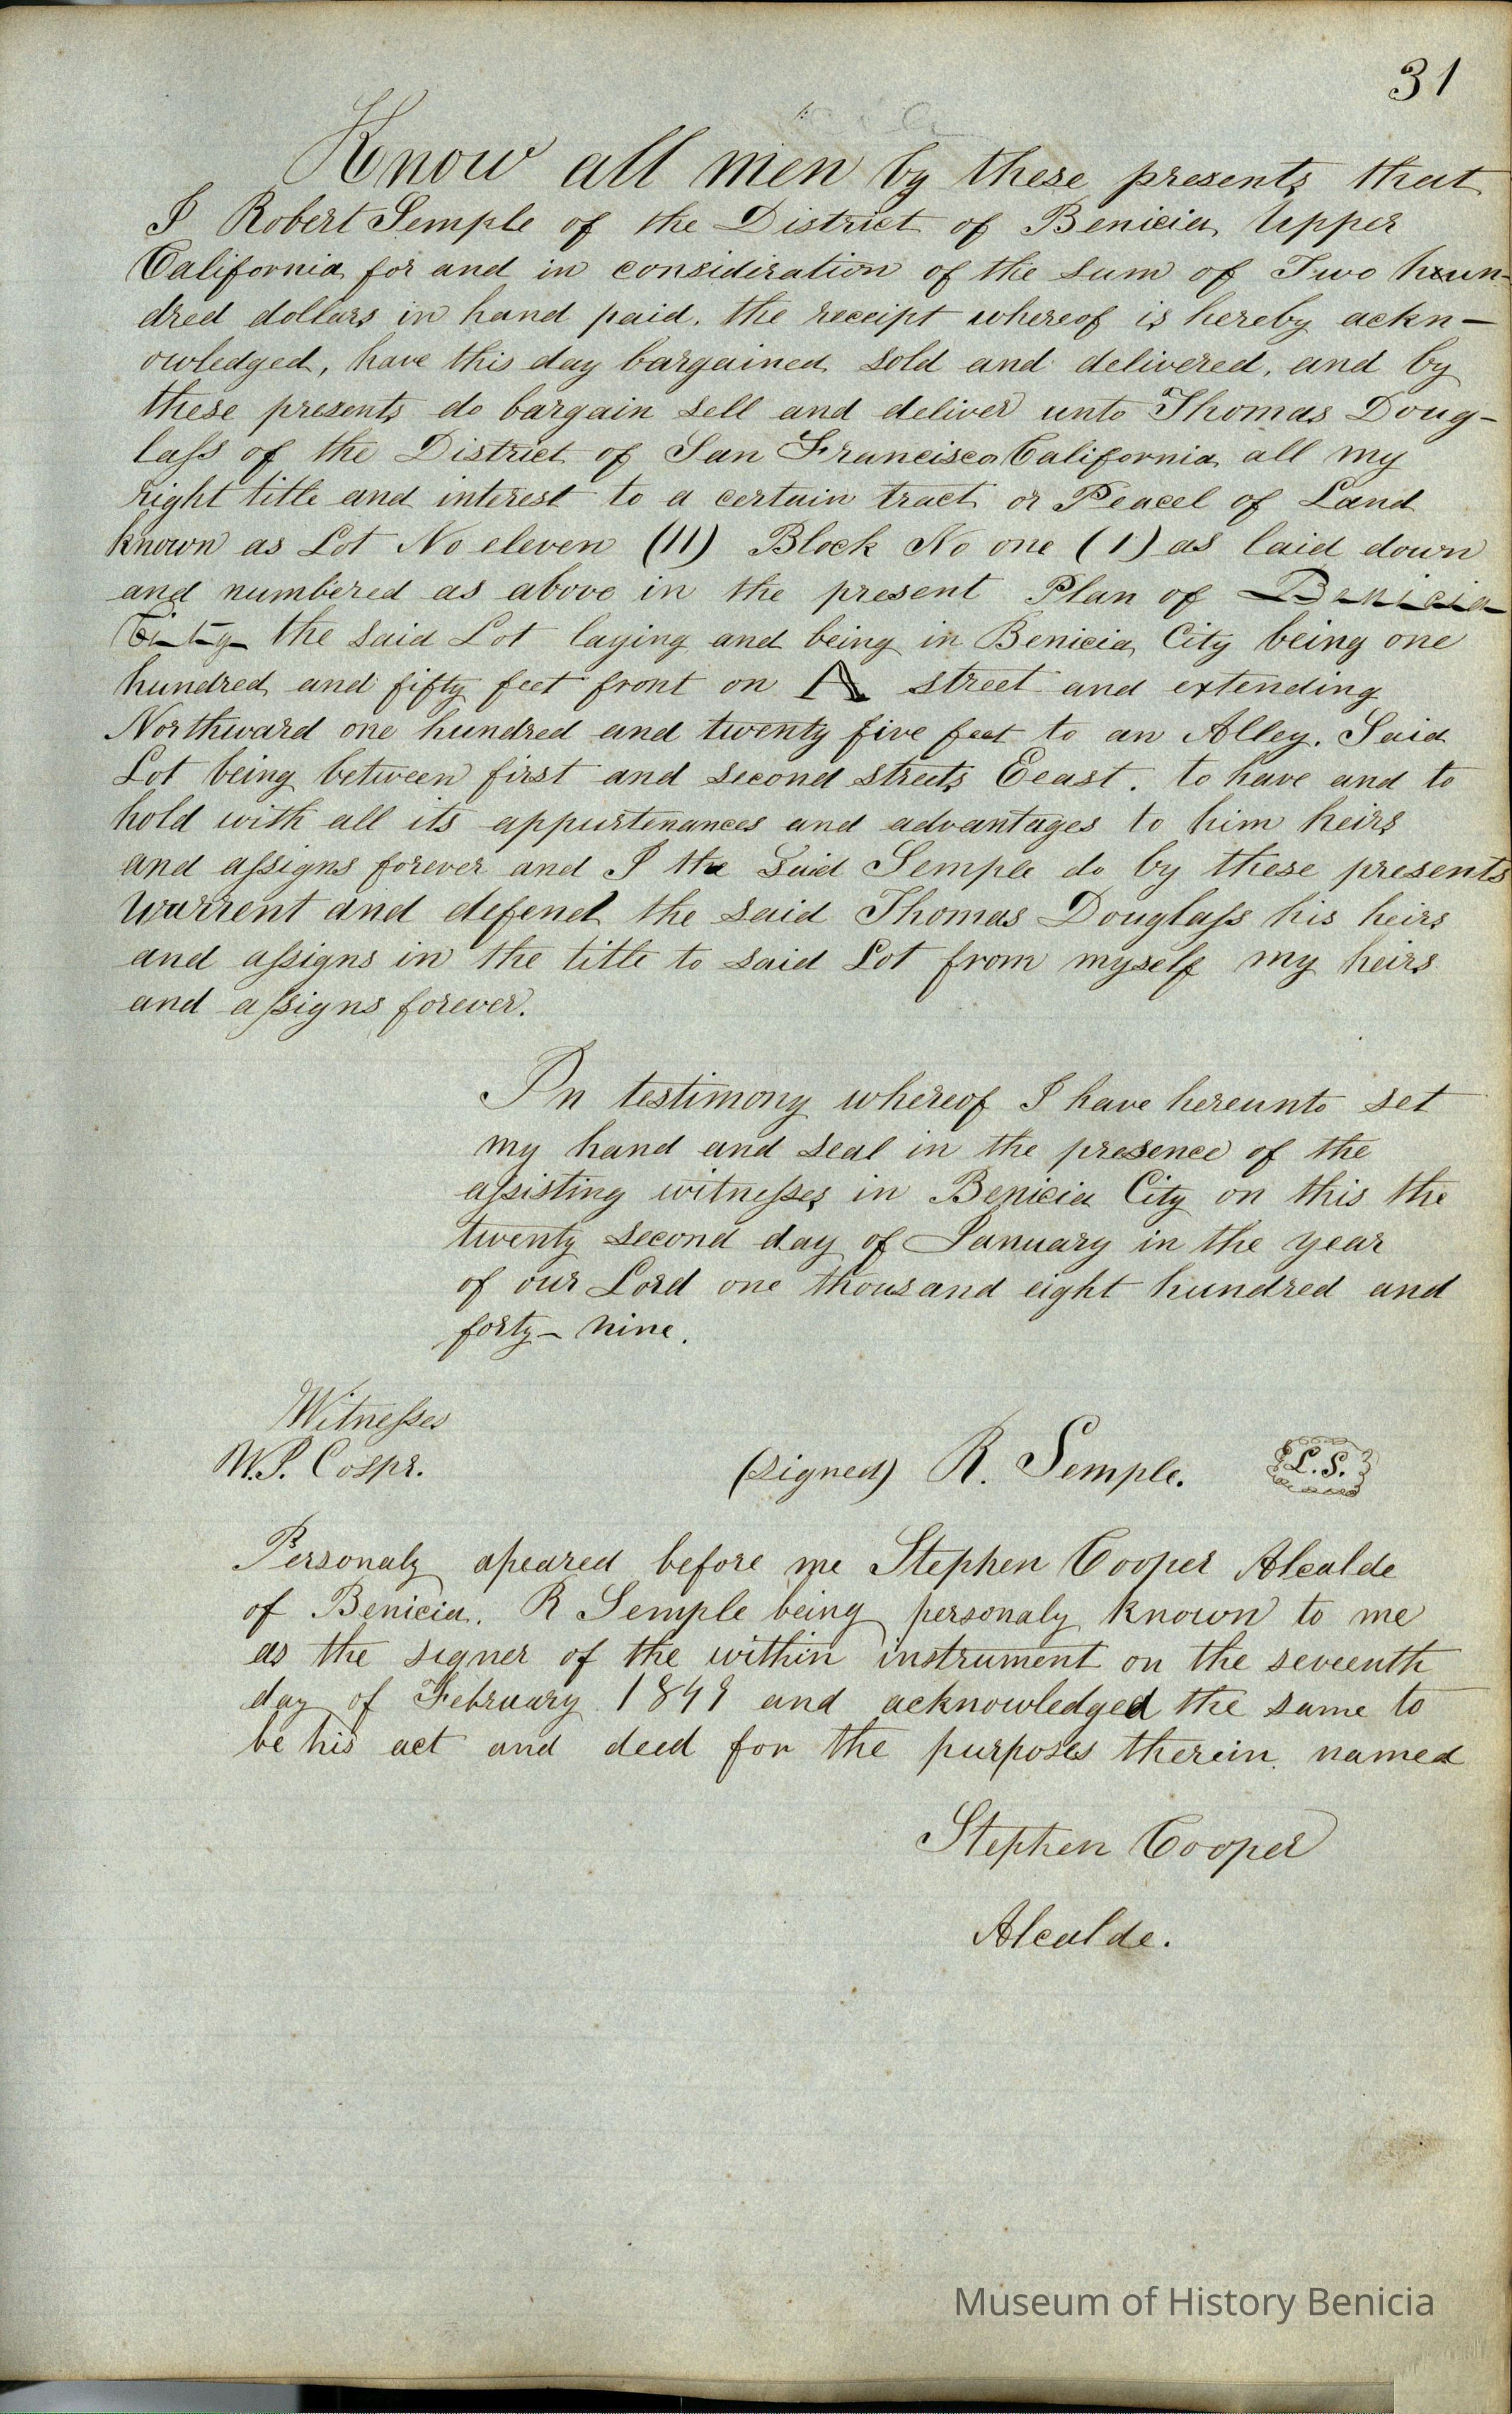 31
Know all men by these presents that
I Robert Semple of the District of Benicia Upper
California for and in consideration of the sum of Two hun-
dred dollars in hand paid, the receipt whereof is hereby ackn-
owledged, have this day bargained sold and delivered, and by
these presents do bargain sell and deliver unto Thomas Doug-
lass of the District of San Francisco California all my
right title and interest to a certain tract or Peacel of Land
known as Lot No eleven (11) Block No one (1) as laid down
and numbered as above in the present Plan of Benicia
City the said Lot laying and being in Benicia City being one
hundred and fifty feet front on A street and extending
Northward one hundred and twenty five feet to an Alley. Said
Lot being between first and second streets Eeast. to have and to
hold with all its appurtenances and advantages to him heirs
and assigns forever and I the Said Semple do by these presents
Warrent and defend the said Thomas Douglass his heirs
and assigns in the title to said Lot from myself my heirs
and assigns forever.
In testimony whereof I have hereunto set
my hand and seal in the presence of the
assisting witnesses in Benicia City on this the
twenty second day of January in the year
of our Lord one thousand eight hundred and
forty-nine.
Witnesses
W.P. Cospr.
(signed) R. Semple. L.S.
Personaly apeared before me Stephen Cooper Alcalde
of Benicia. R Semple being personaly known to me
as the signer of the within instrument on the seveenth
day of February 1849 and acknowledged the same to
be his act and deed for the purposes therein named
Stephen Cooper
Alcalde.
Museum of History Benicia